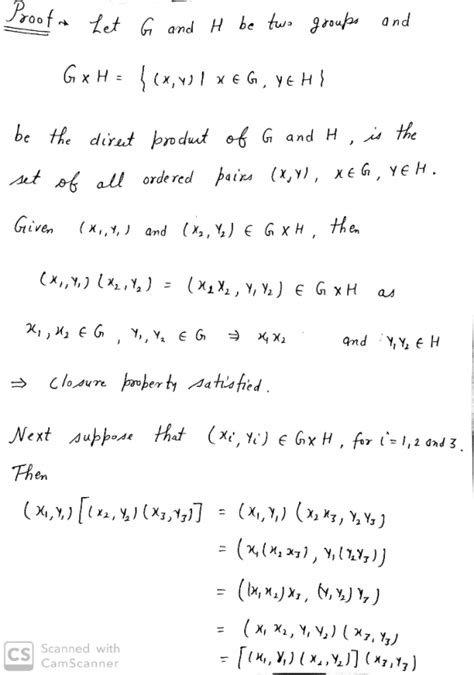 Proof → Let G and H be two groups and
G × H = { (x,y) | x ∈ G, y ∈ H }
be the direct product of G and H, is the
set of all ordered pairs (x,y), x ∈ G, y ∈ H.
Given (x₁,y₁) and (x₂,y₂) ∈ G × H, then
(x₁,y₁) (x₂,y₂) = (x₁x₂, y₁y₂) ∈ G × H as
x₁, x₂ ∈ G, y₁, y₂ ∈ G ⇒ x₁x₂ and y₁y₂ ∈ H
⇒ closure property satisfied.
Next suppose that (xi, yi) ∈ G×H, for i = 1, 2 and 3.
Then
(x₁,y₁) [(x₂,y₂) (x₃,y₃)] = (x₁,y₁) (x₂x₃, y₂y₃)
= (x₁(x₂x₃), y₁(y₂y₃))
= ((x₁x₂)x₃, (y₁y₂)y₃)
= (x₁x₂, y₁y₂) (x₃,y₃)
= [(x₁,y₁) (x₂,y₂)] (x₃,y₃)
CS Scanned with
CamScanner